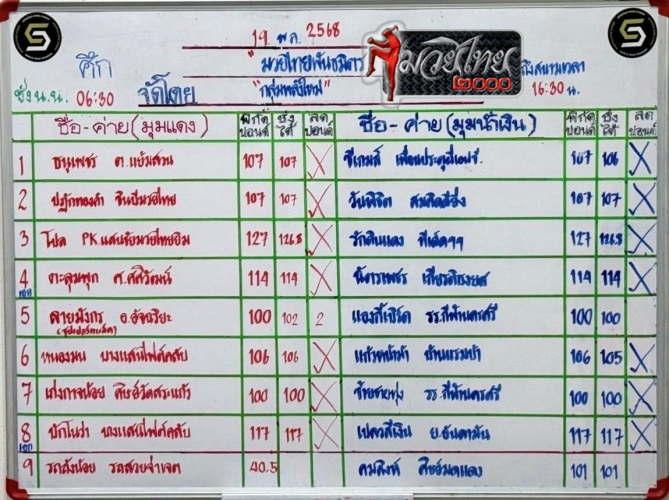 19 พ.ย. 2568
ศึก "มวยไทยพันธมิตร มวยไทย ๒๐๐๐ ถึงสนามเวลา
ชั่ง น.น. 06:30 จัดโดย "กลุ่มพลังใหม่" 16:30 น.
ชื่อ-ค่าย (มุมแดง) พิกัดปอนด์ ชั่งได้ ลดปอนด์ ชื่อ-ค่าย (มุมน้ำเงิน) พิกัดปอนด์ ชั่งได้ ลดปอนด์
1 ธนูเพชร ต.แย้มสวน 107 107 X ซีเกมส์ 107 106 X
2 ปฏักทองคำ จินปีมวยไทย 107 107 X วันพิชิต 107 107 X
3 โปล PK.แสนชัยมวยไทยยิม 127 126.8 X รักดินแดง 127 126.8 X
4 เอก ตะลุมพุก ศ.ศศิวัฒน์ 114 114 X เกียรติธงยศ 114 114 X
5 ลายมังกร อ.อัจฉริยะ 100 102 2 รร.กีฬานครศรี 100 100
6 ทนองมน บางแสนไฟต์คลับ 106 106 X แก้วหน้าม้า บ้านแรมบ้า 106 105 X
7 เก่งกาจน้อย ศิษย์วัดสระแก้ว 100 100 X ซ้ายชายทุ่ง รร.กีฬานครศรี 100 100 X
8 เอก ปักโนว่า บางแสนไฟต์คลับ 117 117 X เปลวสีเงิน ย.อันดามัน 117 117 X
9 รถถังน้อย รถสวยจ่าเจต 40.5 คมสิงห์ ศิษย์มดแดง 101 101